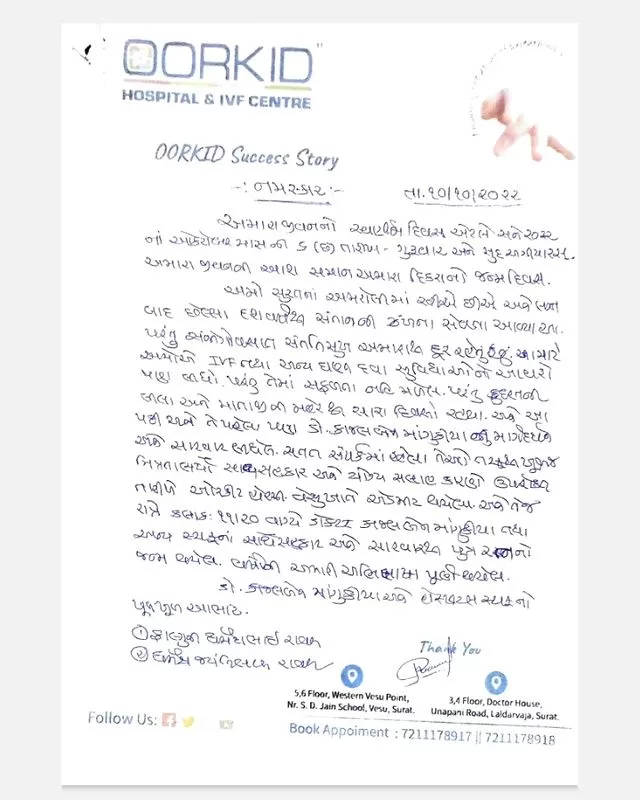 OORKID
HOSPITAL & IVF CENTRE
OORKID Success Story
-: નમસ્કાર :-
તા.૧૦/૧૦/૨૦૨૨
અમારા જીવનનો સ્વર્ણીમ દિવસ એટલે સને ૨૦૨૨
નાં ઓક્ટોબર માસ ની ૬ (છ) તારીખ - ગુરૂવાર અને સુદ અગીયારસ.
અમારા જીવનની આશ સમાન અમારા દિકરાનો જન્મ દિવસ.
અમો સુરતનાં અમરોલીમાં રહીએ છીએ અને લગ્ન
બાદ છેલ્લા દશ વર્ષથી સંતાનની ઝંખના સેવતા આવ્યા હતા.
પરંતુ સંતતિસુખ અમારાથી દૂર રહેતું હતું. આ માટે
અમોએ IVF તથા અન્ય ઘણી દવા સુવિધાઓનો આશરો
પણ લીધો. પરંતુ તેમાં સફળતા નહિ મળેલ. પરંતુ કુદરતની
લીલા અને માતાજીની મહેરથી સારા દિવસો રહ્યા. અને આ
પછી અને તે પહેલા પણ ડો. કાજલબેન માંગુકીયાનું માર્ગદર્શન
અને સારવાર લીધેલ. સતત સંપર્કમાં રહેલા તેઓ
સાથ સહકાર અને યોગ્ય સલાહ
તારીખે ઓરકીડ હોસ્પી. વેસુ ખાતે એડમીટ થયેલા. અને તેજ
રાત્રે કલાક: ૧૧/૨૦ વાગ્યે ડોક્ટર કાજલબેન માંગુકીયા તથા
અન્ય સ્ટાફનાં સાથ સહકાર અને સારવારથી પુત્ર રત્નનો
જન્મ થયેલ. અમારી અભિલાષા પૂર્ણ થયેલ.
ડો. કાજલબેન માંગુકીયા અને હોસ્પિટલ સ્ટાફનો
ખૂબ ખૂબ આભાર.
① ફાલ્ગુની ધર્મેશભાઈ રાવલ
② ધર્મેશ જયંતિલાલ રાવલ
Thank You
5,6 Floor, Western Vesu Point,
Nr. S. D. Jain School, Vesu, Surat.
3,4 Floor, Doctor House,
Unapani Road, Laldarvaja, Surat.
Follow Us:
Book Appoiment : 7211178917 || 7211178918